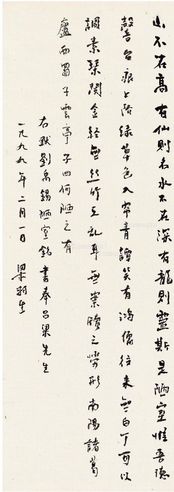 山不在高有仙則名水不在深有龍則靈斯是陋室惟吾德
馨苔痕上階綠草色入帘青談笑有鴻儒往來無白丁可以
調素琴閱金經無絲竹之亂耳無案牘之勞形南陽諸葛
廬西蜀子雲亭子曰何陋之有
右默劉禹錫陋室銘書奉呂梁先生
一九九九年二月一日 梁羽生